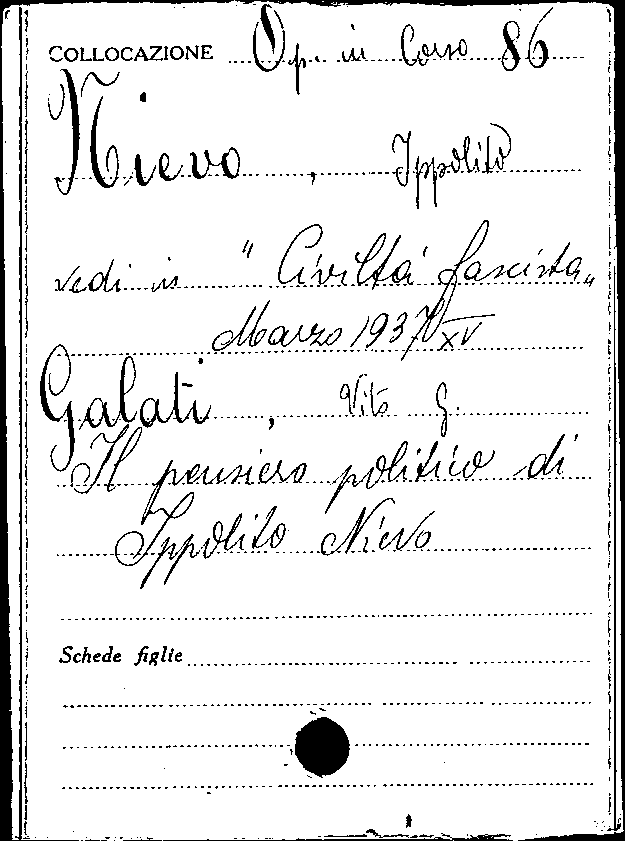 COLLOCAZIONE Op. in Corso 86
Nievo, Ippolito
vedi in "Civiltà fascista„
Marzo 1937 XV
Galati, Vito G.
Il pensiero politico di
Ippolito Nievo
Schede figlie